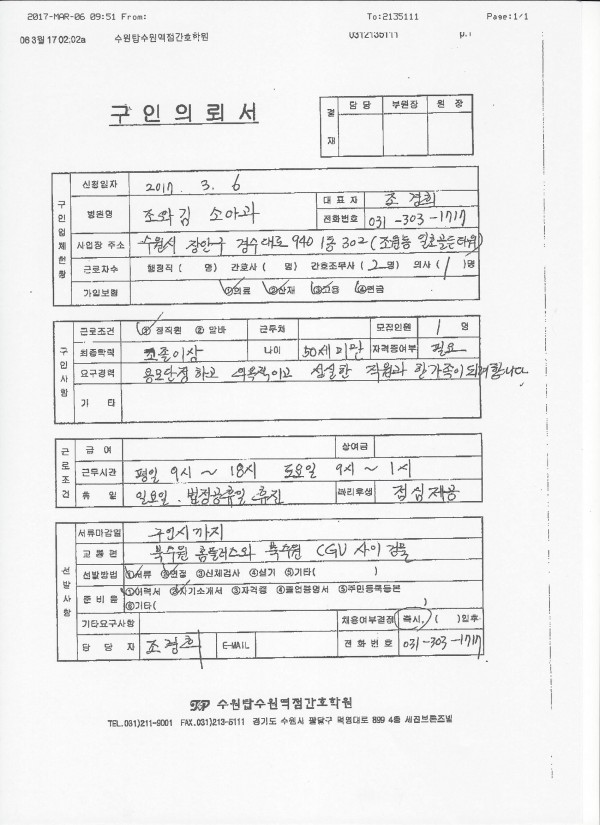 2017-MAR-06 09:51 From: To:2135111 Page:1/1
06 3월 17 02:02a 수원탑수원역점간호학원 0312135111 p.1
구 인 의 뢰 서
결 재 담 당 부원장 원 장
구인업체현황
신청일자 2017. 3. 6
병원명 조와김 소아과 대 표 자 조 경희
전화번호 031-303-1717
사업장 주소 수원시 장안구 경수대로 940 1동 302 (조원동 일호골든타워)
근로자수 행정직 ( 명) 간호사 ( 명) 간호조무사 ( 2 명) 의사 ( 1 )명
가입보험 ①의료 ②산재 ③고용 ④연금
구인사항
근로조건 ① 정직원 ② 알바 근무처 모집인원 1 명
최종학력 초졸이상 나이 50세 미만 자격증여부 필요
요구경력 용모단정하고 의욕적이고 성실한 직원과 한가족이 되려합니다.
기 타
근로조건
급 여 상여금
근무시간 평일 9시 ~ 18시 토요일 9시 ~ 1시
휴 일 일요일. 법정공휴일 휴진 복리후생 점심제공
선발사항
서류마감일 구인시까지
교 통 편 북수원 홈플러스와 북수원 CGV 사이 건물
선발방법 ①서류 ②면접 ③신체검사 ④실기 ⑤기타( )
준 비 물 ①이력서 ②자기소개서 ③자격증 ④졸업증명서 ⑤주민등록등본
⑥기타( )
기타요구사항 채용여부결정 즉시, ( )일후
담 당 자 조경희 E-MAIL 전 화 번 호 031-303-1717
TOP 수원탑수원역점간호학원
TEL.031)211-9001 FAX.031)213-5111 경기도 수원시 팔달구 덕영대로 899 4층 세진브론즈빌